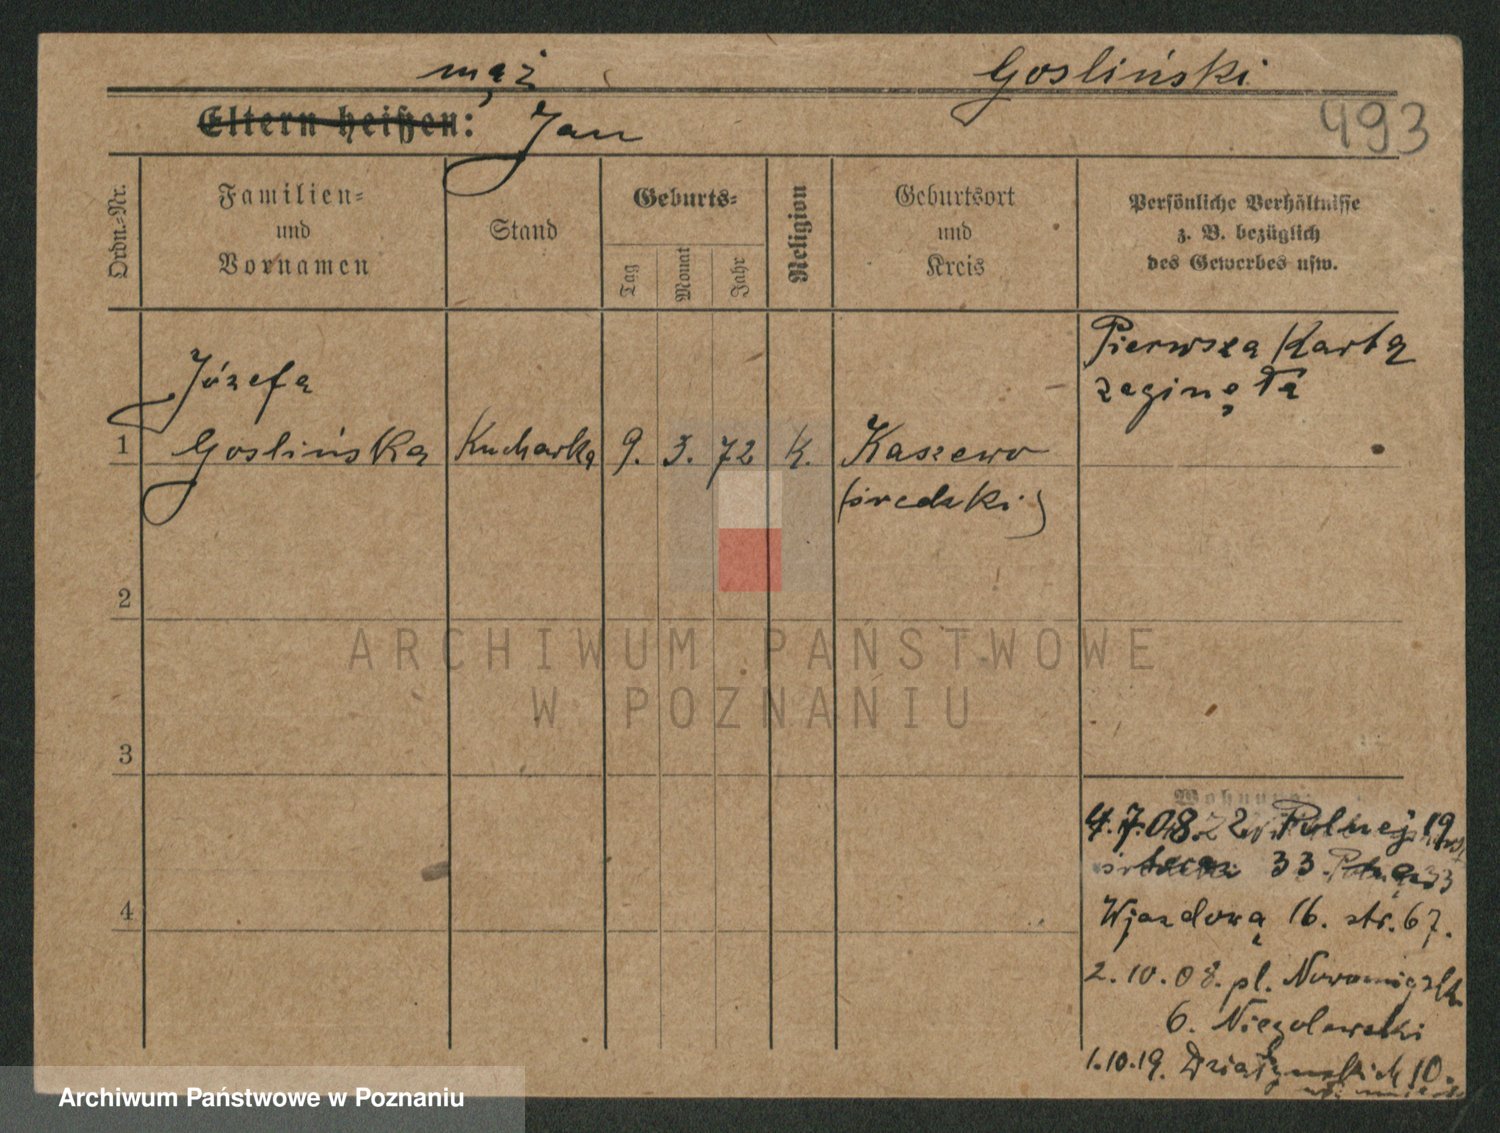 mąż Gosliński
Eltern heißen: Jan
493
Ordn.-Nr.
Familien-
und
Vornamen
Stand
Geburts-
Tag
Monat
Jahr
Religion
Geburtsort
und
Kreis
Persönliche Verhältnisse
z. B. bezüglich
des Gewerbes usw.
Pierwsza Karta
zaginęła
Józefa
1 Goslińska Kucharka 9. 3. 72 K. Kaszewo
(średzki)
2
3
4
Wohnung:
4.7.08. Polnej 19
33
Wjazdowa 16. str. 67.
2.10.08. pl. Nowomiejski
6. Niegolewski
1.10.19. Działyńskich 10.
ARCHIWUM PAŃSTWOWE
W POZNANIU
Archiwum Państwowe w Poznaniu